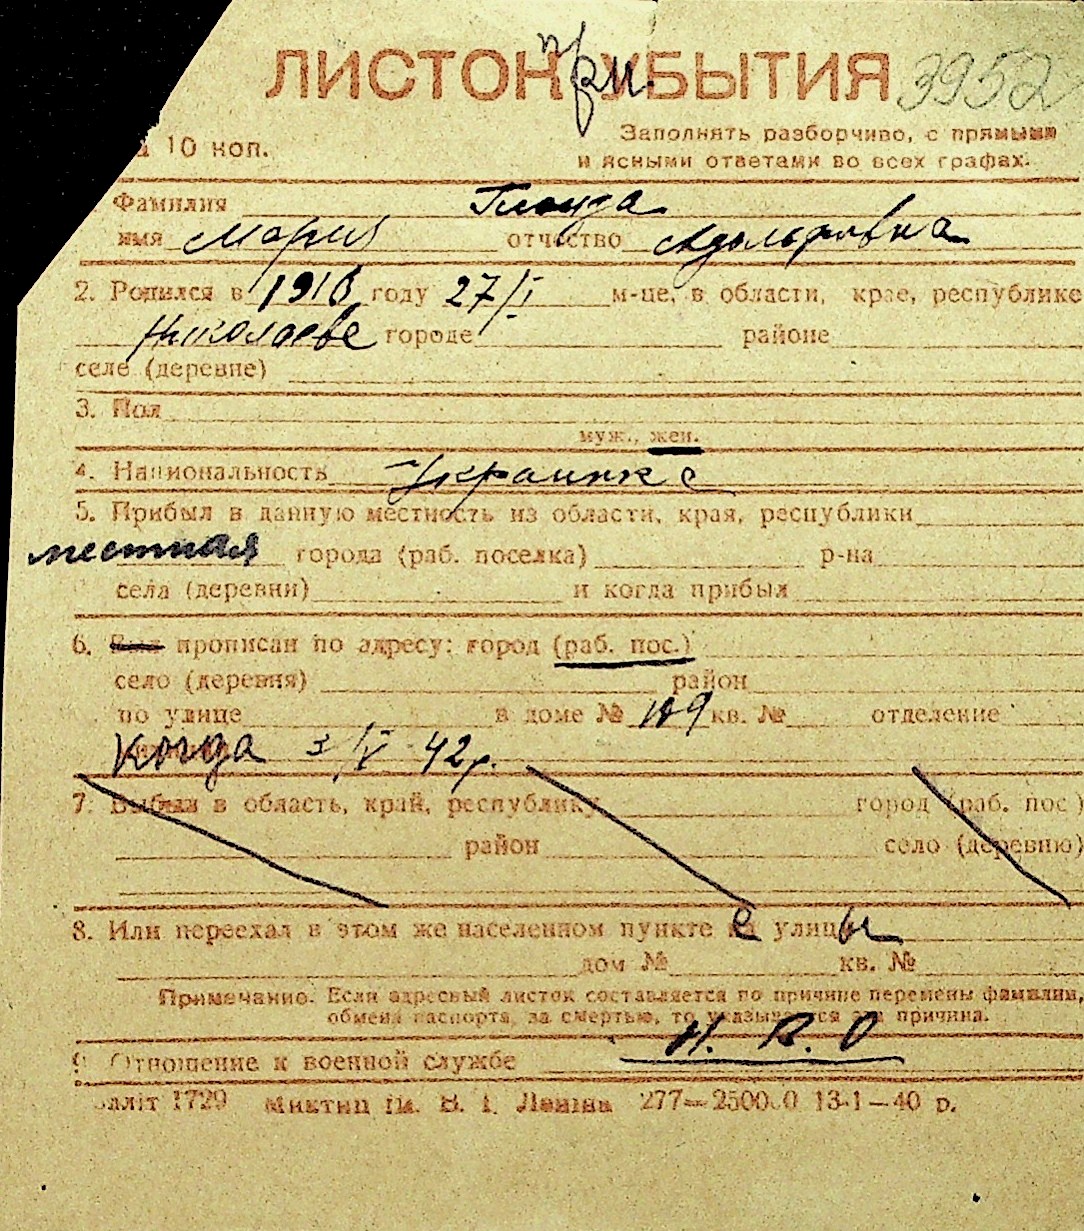 ЛИСТОК при УБЫТИЯ 3952
10 коп.
Заполнять разборчиво, с прямыми
и ясными ответами во всех графах.
Фамилия
имя Мария отчество Адольфовна
2. Родился в 1918 году 27/I м-це, в области, крае, республике
Николаеве городе районе
селе (деревне)
3. Пол
муж., жен.
4. Национальность Украинка
5. Прибыл в данную местность из области, края, республики
местная города (раб. поселка) р-на
села (деревни) и когда прибыл
6. Был прописан по адресу: город (раб. пос.)
село (деревня) район
по улице в доме № 109 кв. № отделение
Когда /V 42 г.
7. Выбыл в область, край, республику город (раб. пос.)
район село (деревню)
8. Или переехал в этом же населенном пункте с улицы
дом № кв. №
Примечание. Если адресный листок составляется по причине перемены фамилии,
обмена паспорта, за смертью, то указывается эта причина.
Н. В. О
9. Отношение к военной службе
1729 ім. В. І. Леніна 277—25000 13-1—40 р.